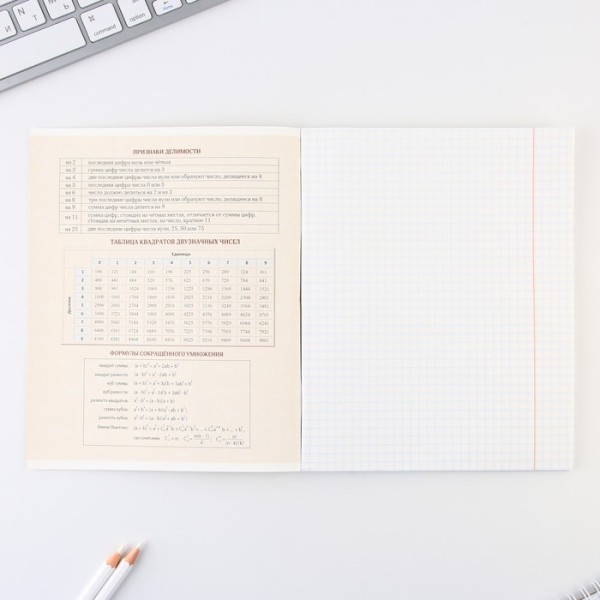 command
option
ПРИЗНАКИ ДЕЛИМОСТИ
на 2 последняя цифра ноль или чётная
на 3 сумма цифр числа делится на 3
на 4 две последние цифры числа нули или образуют число, делящееся на 4
на 5 последняя цифра числа 0 или 5
на 6 число должно делиться на 2 и на 3
на 8 три последние цифры числа нули или образуют число, делящееся на 8
на 9 сумма цифр числа делится на 9
на 11 сумма цифр, стоящих на чётных местах, отличается от суммы цифр,
стоящих на нечётных местах, на число, кратное 11
на 25 две последние цифры числа нули, 25, 50 или 75
ТАБЛИЦА КВАДРАТОВ ДВУЗНАЧНЫХ ЧИСЕЛ
Единицы
0 1 2 3 4 5 6 7 8 9
Десятки
1 100 121 144 169 196 225 256 289 324 361
2 400 441 484 529 576 625 676 729 784 841
3 900 961 1024 1089 1156 1225 1296 1369 1444 1521
4 1600 1681 1764 1849 1936 2025 2116 2209 2304 2401
5 2500 2601 2704 2809 2916 3025 3136 3249 3364 3481
6 3600 3721 3844 3969 4096 4225 4356 4489 4624 4761
7 4900 5041 5184 5329 5476 5625 5776 5929 6084 6241
8 6400 6561 6724 6889 7056 7225 7396 7569 7744 7921
9 8100 8281 8464 8649 8836 9025 9216 9409 9604 9801
ФОРМУЛЫ СОКРАЩЁННОГО УМНОЖЕНИЯ
квадрат суммы: (a + b)² = a² + 2ab + b²
квадрат разности: (a - b)² = a² - 2ab + b²
куб суммы: (a + b)³ = a³ + 3a²b + 3ab² + b³
куб разности: (a - b)³ = a³ - 3a²b + 3ab² - b³
разность квадратов: a² - b² = (a - b)(a + b)
сумма кубов: a³ + b³ = (a + b)(a² - ab + b²)
разность кубов: a³ - b³ = (a - b)(a² + ab + b²)
бином Ньютона:
где сочетания: